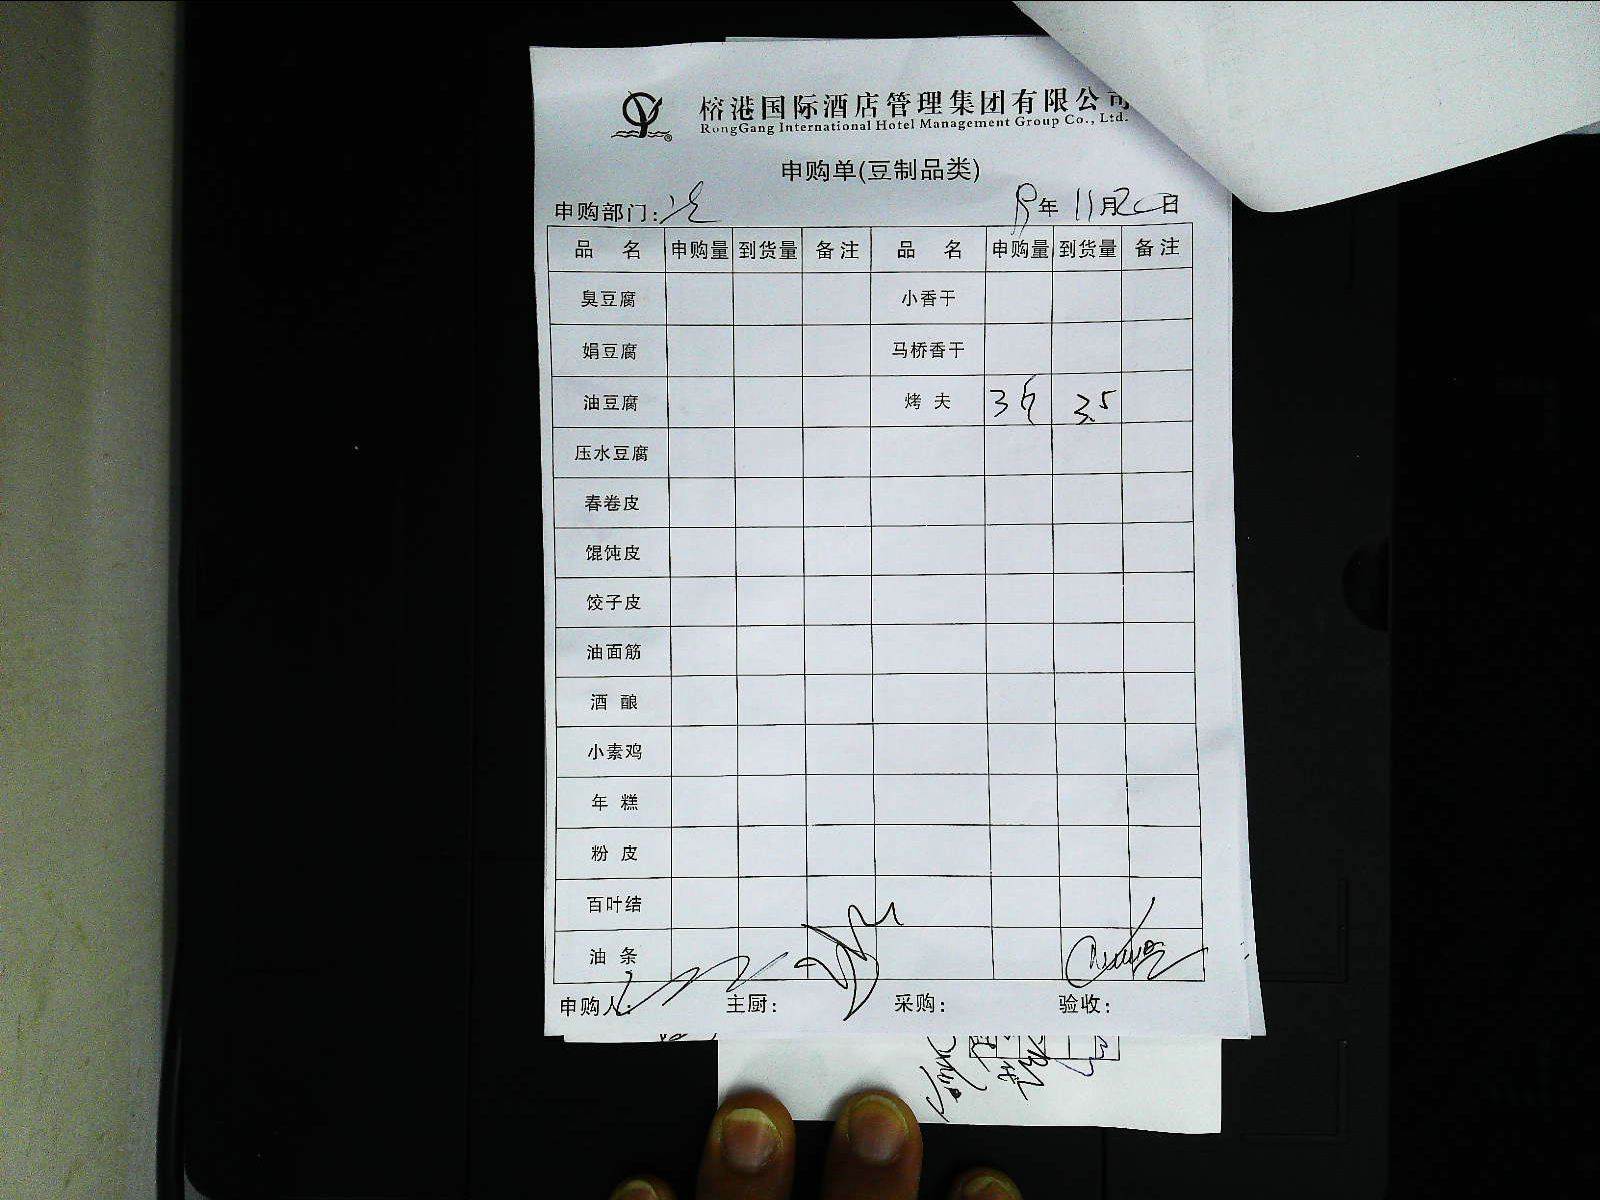 榕港国际酒店管理集团有限公司
RongGang International Hotel Management Group Co., Ltd.
申购单(豆制品类)
申购部门: 年 11月20日
品 名 申购量 到货量 备注 品 名 申购量 到货量 备注
臭豆腐 小香干
娟豆腐 马桥香干
油豆腐 烤 夫 3斤 3.5
压水豆腐
春卷皮
馄饨皮
饺子皮
油面筋
酒 酿
小素鸡
年 糕
粉 皮
百叶结
油 条
申购人: 主厨: 采购: 验收: